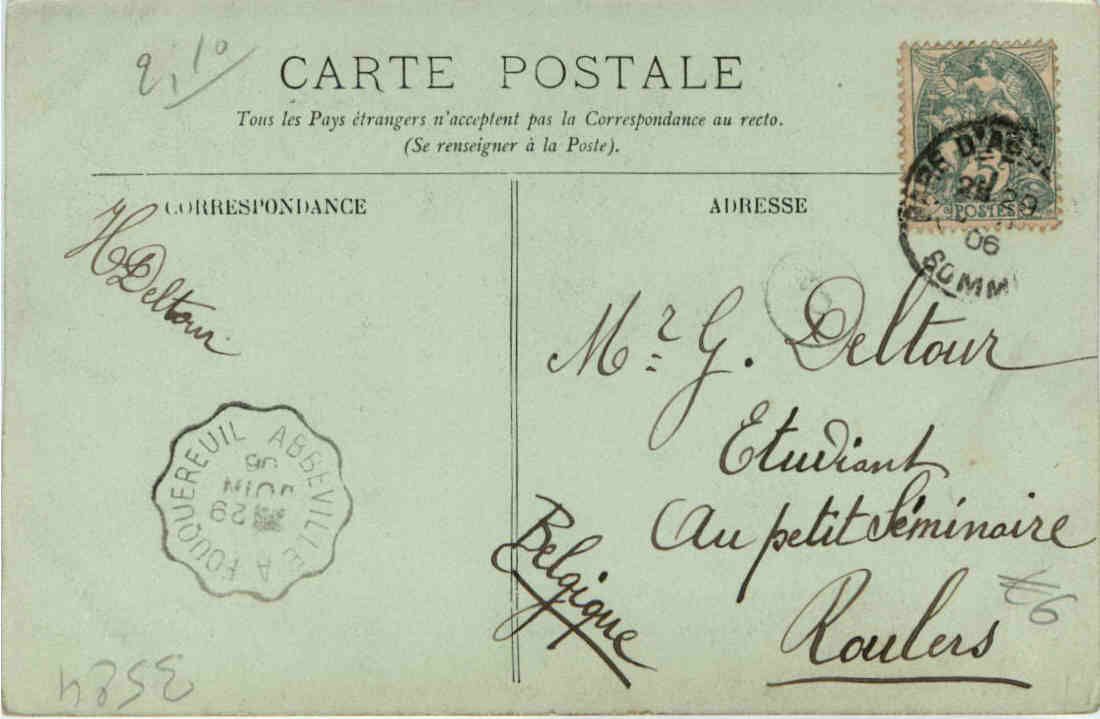 2,10
CARTE POSTALE
Tous les Pays étrangers n'acceptent pas la Correspondance au recto.
(Se renseigner à la Poste).
CORRESPONDANCE
H Deltour
ABBEVILLE A FOUQUEREUIL
29
JUIN
06
3524
ADRESSE
5
POSTES
29
06
SOMM
Mr G. Deltour
Etudiant
Au petit Séminaire
Roulers
Belgique
€6